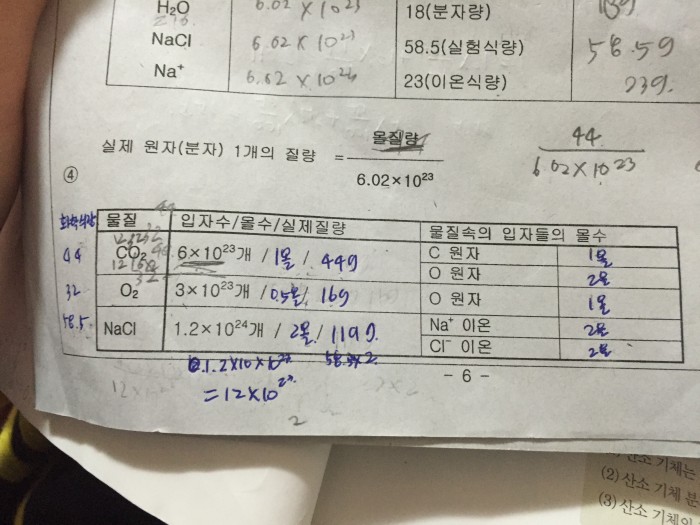 H₂O 6.02 × 10²³ 18(분자량) 18g
NaCl 6.02 × 10²³ 58.5(실험식량) 58.5g
Na⁺ 6.02 × 10²³ 23(이온식량) 23g.
실제 원자(분자) 1개의 질량 = 몰질량 / 6.02×10²³ 44 / 6.02×10²³
④
화학식량 물질 입자수/몰수/실제질량 물질속의 입자들의 몰수
44 CO₂ 6×10²³개 / 1몰 / 44g C 원자 1몰
O 원자 2몰
32 O₂ 3×10²³개 / 0.5몰 / 16g O 원자 1몰
58.5 NaCl 1.2×10²⁴개 / 2몰 / 119g. Na⁺ 이온 2몰
Cl⁻ 이온 2몰
1.2×10×10²³ 58.5×2
= 12×10²³
2
- 6 -
산소 기체는
(2) 산소 기체 분
(3) 산소 기체의